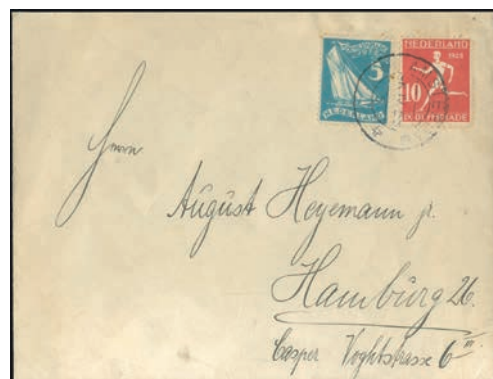 5
NEDERLAND
NEDERLAND
1928
10
IXE OLYMPIADE
Herrn
August Heyemann jr.
Hamburg 26.
Casper Voghtstrasse 6 III